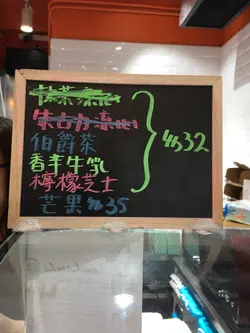 抹茶流心
朱古力流心
伯爵茶
香芋牛乳
檸檬芝士
芒果 $35
$32